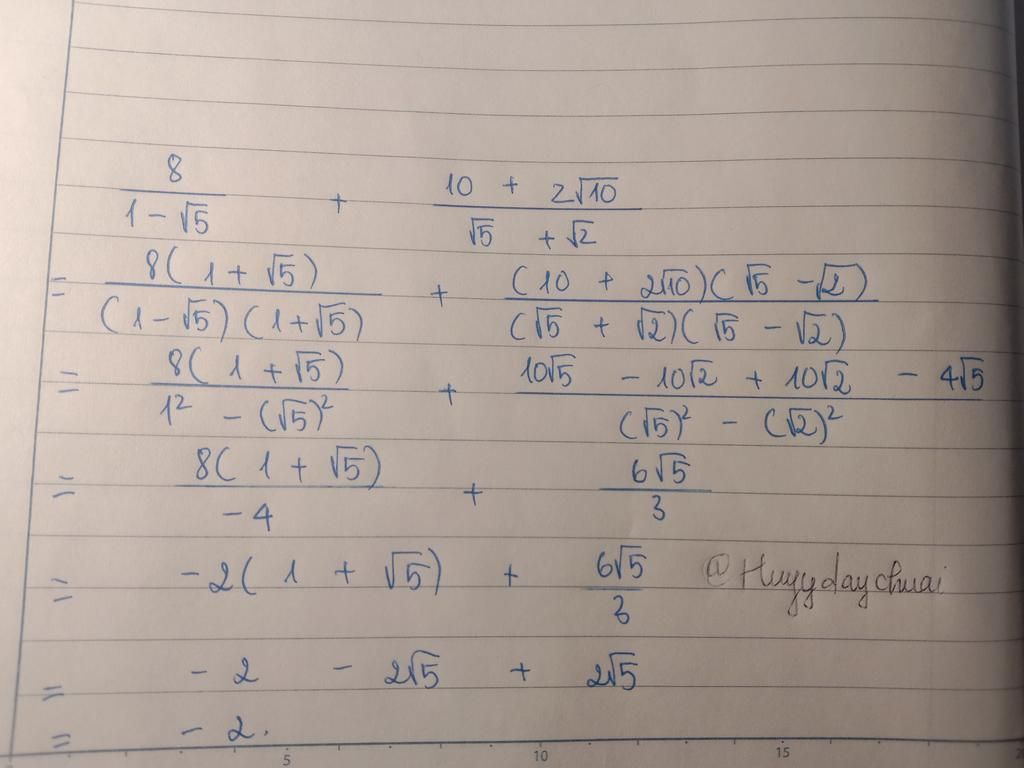 8/(1 - √5) + (10 + 2√10)/(√5 + √2)
= 8(1 + √5)/((1 - √5)(1 + √5)) + (10 + 2√10)(√5 - √2)/((√5 + √2)(√5 - √2))
= 8(1 + √5)/(1² - (√5)²) + (10√5 - 10√2 + 10√2 - 4√5)/((√5)² - (√2)²)
= 8(1 + √5)/(-4) + 6√5/3
= -2(1 + √5) + 6√5/3 @Huyydaychuai
= -2 - 2√5 + 2√5
= -2.
5 10 15